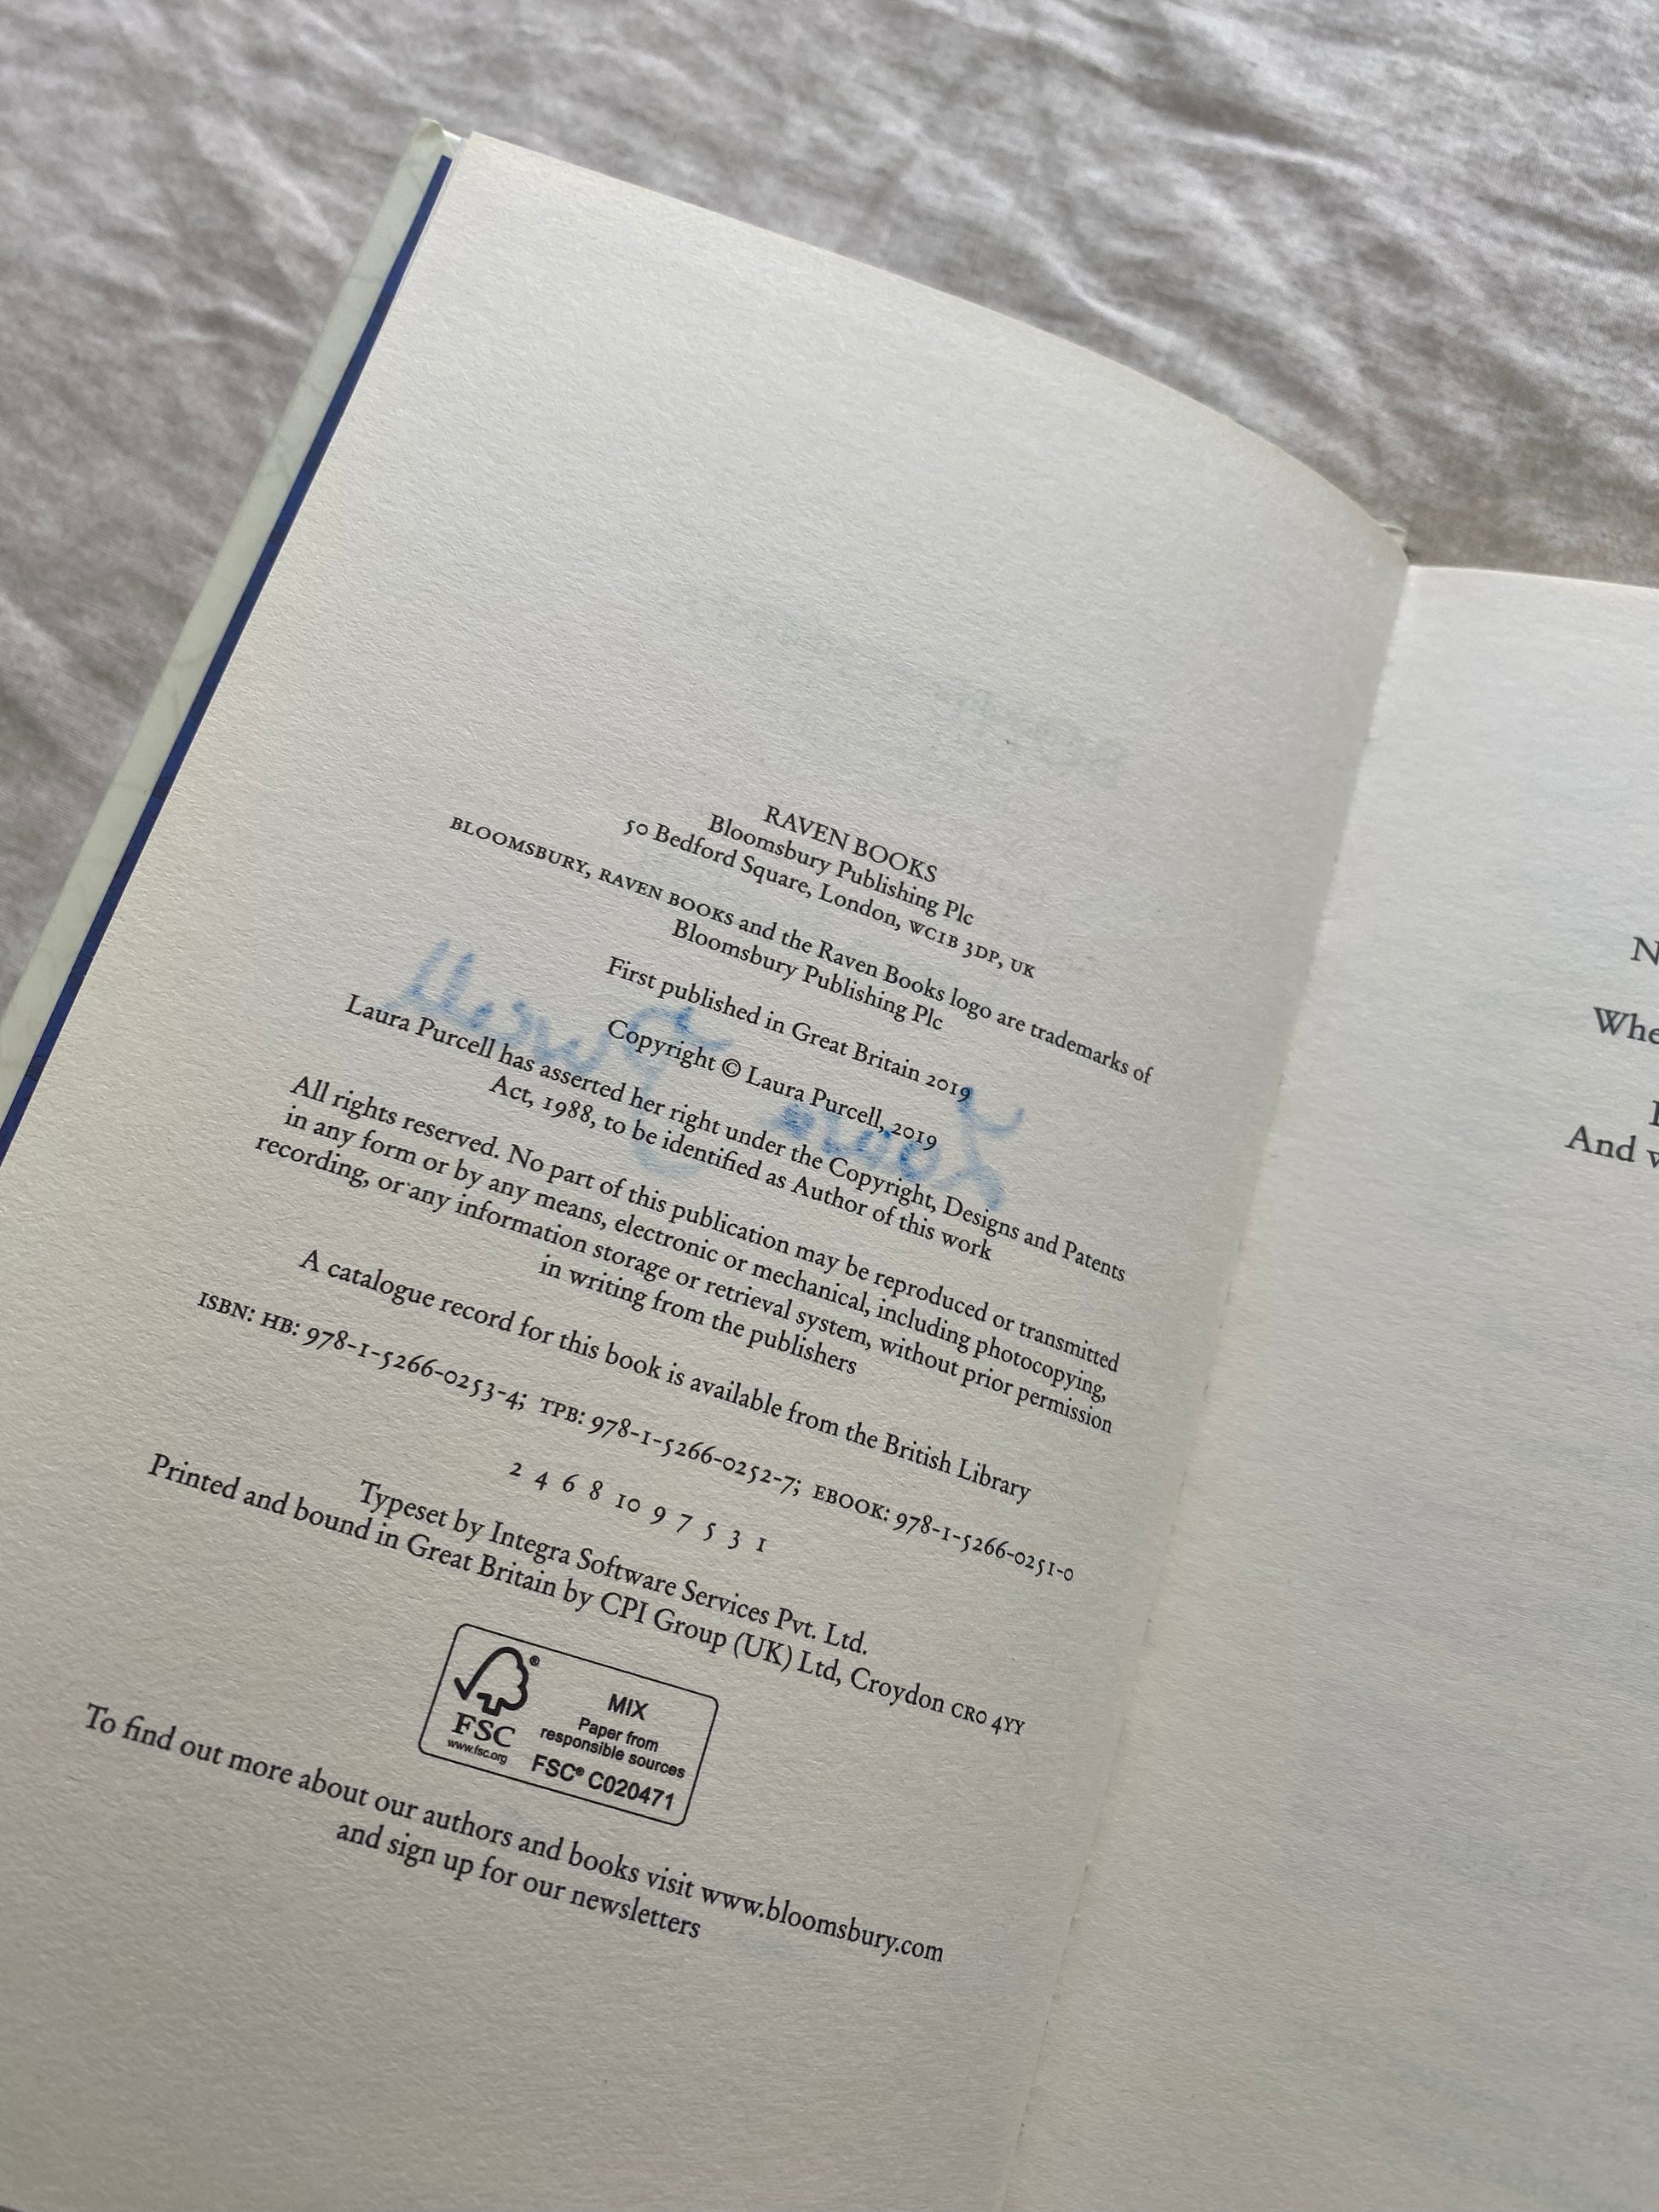 RAVEN BOOKS
Bloomsbury Publishing Plc
50 Bedford Square, London, WC1B 3DP, UK
BLOOMSBURY, RAVEN BOOKS and the Raven Books logo are trademarks of
Bloomsbury Publishing Plc
First published in Great Britain 2019
Copyright © Laura Purcell, 2019
Laura Purcell has asserted her right under the Copyright, Designs and Patents
Act, 1988, to be identified as Author of this work
All rights reserved. No part of this publication may be reproduced or transmitted
in any form or by any means, electronic or mechanical, including photocopying,
recording, or any information storage or retrieval system, without prior permission
in writing from the publishers
A catalogue record for this book is available from the British Library
ISBN: HB: 978-1-5266-0253-4; TPB: 978-1-5266-0252-7; EBOOK: 978-1-5266-0251-0
2 4 6 8 10 9 7 5 3 1
Typeset by Integra Software Services Pvt. Ltd.
Printed and bound in Great Britain by CPI Group (UK) Ltd, Croydon CR0 4YY
FSC
www.fsc.org
MIX
Paper from
responsible sources
FSC® C020471
To find out more about our authors and books visit www.bloomsbury.com
and sign up for our newsletters
Laura Purcell
And